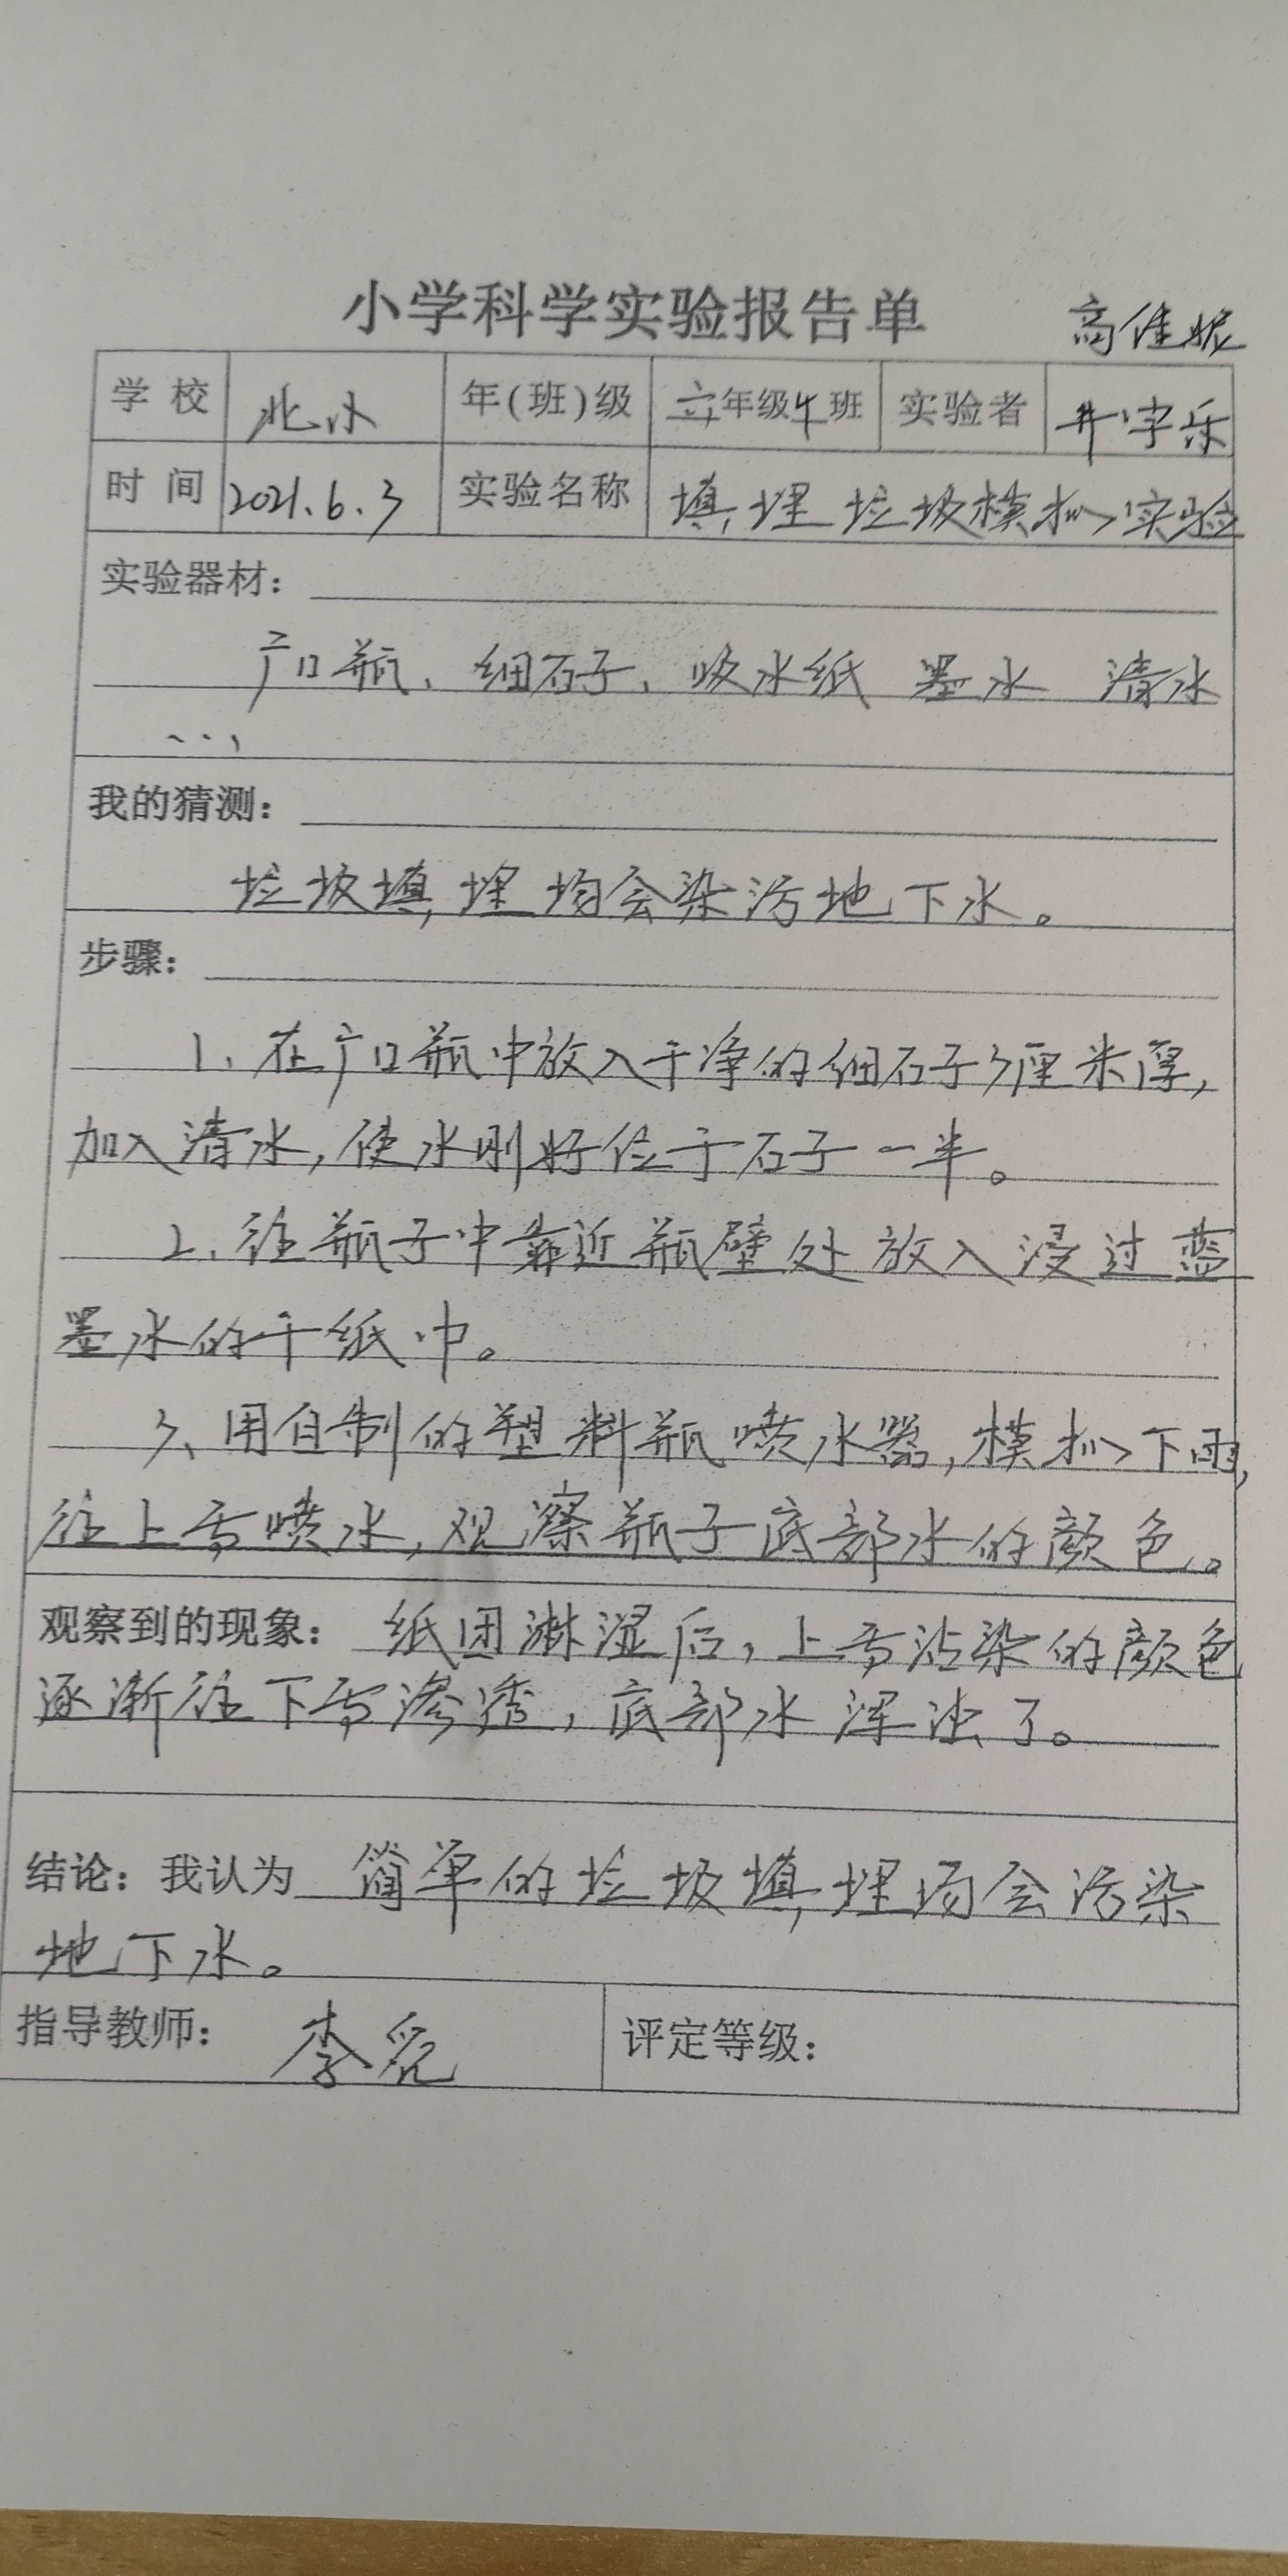 小学科学实验报告单 高佳妮
学校 北小 年(班)级 六年级4班 实验者 牛字乐
时间 2021.6.3 实验名称 填埋垃圾模拟实验
实验器材：
广口瓶、细石子、吸水纸 墨水 清水
...
我的猜测：
垃圾填埋均会染污地下水。
步骤：
1、在广口瓶中放入干净的细石子3厘米厚，
加入清水，使水刚好位于石子一半。
2、往瓶子中靠近瓶壁处放入浸过蓝
墨水的干纸中。
3、用自制的塑料瓶喷水器，模拟下雨，
往上面喷水，观察瓶子底部水的颜色。
观察到的现象：纸团淋湿后，上面沾染的颜色
逐渐往下面渗透，底部水浑浊了。
结论：我认为 简单的垃圾填埋场会污染
地下水。
指导教师： 李 评定等级：